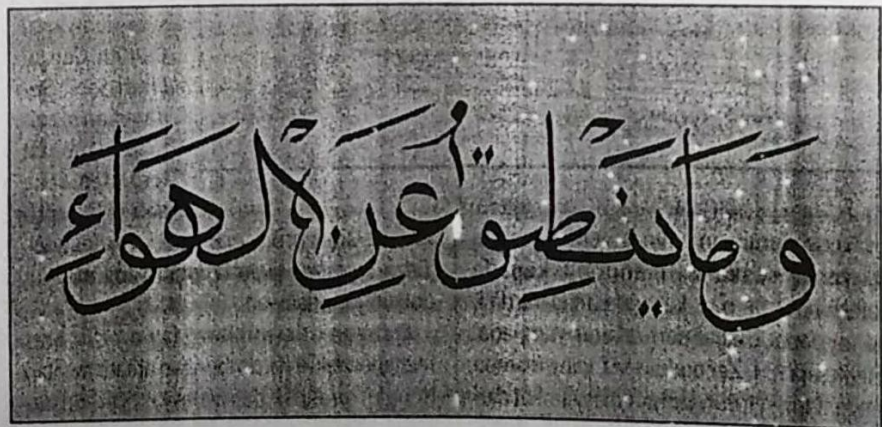 وَمَا يَنْطِقُ عَنِ الْهَوَاءِ